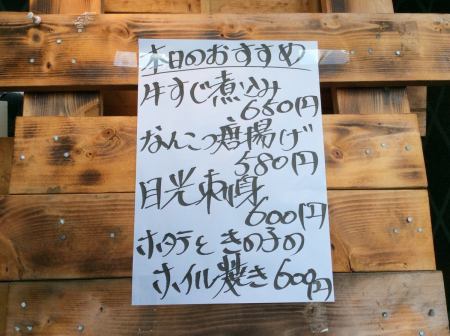 本日のおすすめ
牛すじ煮込み
650円
なんこつ唐揚げ
580円
日光刺身
600円
ホタテときの子の
ホイル焼き 600円